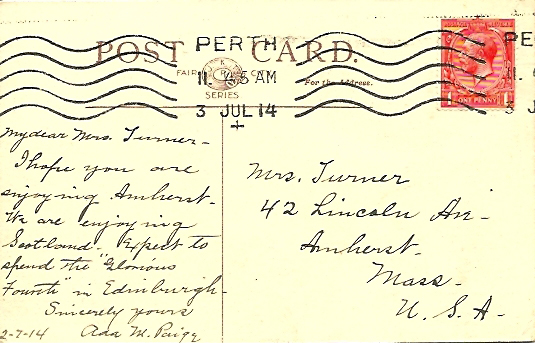 POST CARD.
PERTH
11 45 AM
3 JUL 14
FAIR
SERIES
For the Address.
PE
11.
3 J
ONE PENNY
My dear Mrs. Turner -
I hope you are
enjoying Amherst.
We are enjoying
Scotland. Expect to
spend the "Glorious
Fourth" in Edinburgh.
Sincerely yours
2-7-14 Ada M. Paige
Mrs. Turner
42 Lincoln Av-
Amherst.
Mass.
U. S. A-